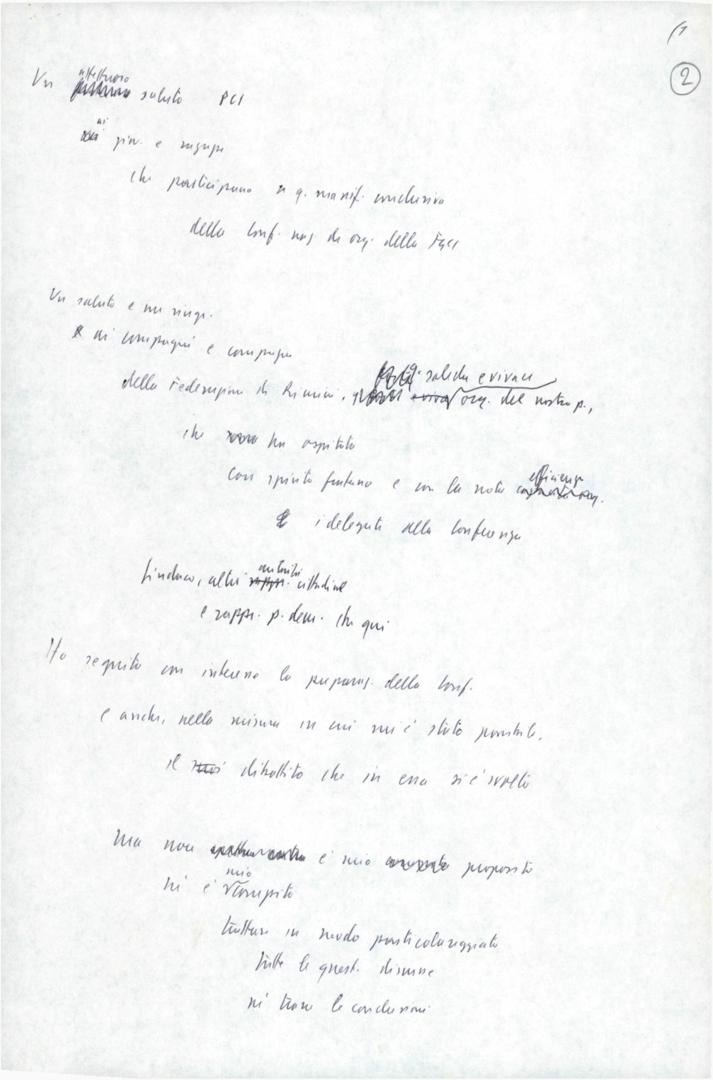 2
Un affettuoso saluto PCI
ai giov. e ragazze
che partecipano a q. manif. conclusiva
della Conf. naz. di org. della FGCI
Un saluto e un ringr.
ai compagni e compagne
della Federazione di Rimini, solida e vivace org. del nostro p.,
che ha ospitato
con spirito fraterno e con la nota efficienza
i delegati alla Conferenza
Sindaco, altre autorità cittadine
e rappr. p. dem. che qui
Ho seguito con interesse la preparaz. della Conf.
e anche, nella misura in cui mi è stato possibile,
il dibattito che in essa si è svolto
Ma non è mio proposito
né è mio compito
trattare in modo particolareggiato
tutte le quest. discusse
né trarre le conclusioni